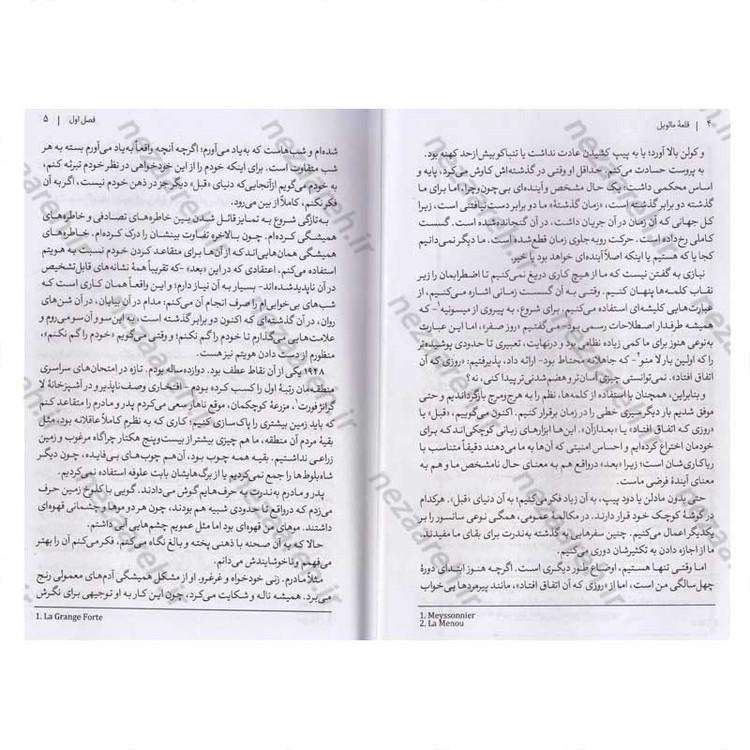 ۴ | قلعهٔ مالویل
و کولن بالا آورد؛ یا به پیپ کشیدن عادت نداشت یا تنباکو بیش‌ازحد کهنه بود.
به پروست حسادت می‌کنم. حداقل او وقتی در گذشته‌اش کاوش می‌کرد، پایه و
اساس محکمی داشت؛ یک حال مشخص و آینده‌ای بی‌چون‌وچرا، اما برای ما
گذشته دو برابر گذشته است، «زمان گذشتهٔ» ما دو برابر دست نیافتنی است، زیرا
کل جهانی که آن زمان در آن جریان داشت، در آن گنجانده‌شده است. گسست
کاملی رخ‌داده است. حرکت روبه‌جلوی زمان قطع‌شده است. ما دیگر نمی‌دانیم
کجا یا که هستیم یا اینکه اصلاً آینده‌ای خواهد بود یا خیر.
نیازی به گفتن نیست که ما از هیچ کاری دریغ نمی‌کنیم تا اضطرابمان را زیر
نقاب کلمه‌ها پنهان کنیم. وقتی به آن گسست زمانی اشاره می‌کنیم، از
عبارت‌هایی کلیشه‌ای استفاده می‌کنیم، برای شروع، به پیروی از میسونیه¹ -که
همیشه طرفدار اصطلاحات رسمی بود- می‌گفتیم «روز صفر»، اما این عبارت
به‌نوعی هنوز برای ما کمی زیاده نظامی بود و درنهایت، تعبیری تا حدودی پوشیده‌تر
را که اولین بار لا منو² -که جاهلانه محتاط بود- ارائه داد، پذیرفتیم: «روزی که آن
اتفاق افتاد». نمی‌توانستی چیزی آسان‌تر و هضم‌شدنی‌تر پیدا کنی، نه؟
و بنابراین، همچنان با استفاده از کلمه‌ها، نظم را به هرج‌ومرج بازگرداندیم و حتی
موفق شدیم بار دیگر سیری خطی را در زمان برقرار کنیم. اکنون می‌گوییم، «قبل» یا
«روزی که اتفاق افتاد» یا «بعدازآن». این‌ها ابزارهای زبانی کوچکی‌اند که برای
خودمان اختراع کرده‌ایم و احساس امنیتی که آن‌ها به ما می‌دهند دقیقاً متناسب با
ریاکاری‌شان است؛ زیرا «بعد» درواقع هم به معنای حال نامشخص ما و هم به
معنای آیندهٔ فرضی ماست.
حتی بدون مادلن یا دود پیپ، به آن زیاد فکر می‌کنیم؛ به آن دنیای «قبل». هرکدام
در گوشهٔ کوچک خود قرار دارند. در مکالمهٔ عمومی، همگی نوعی سانسور را بر
یکدیگر اعمال می‌کنیم. چنین سفرهایی به گذشته به‌ندرت برای بقای ما مفیدند.
ما از اجازه دادن به تکثیرشان دوری می‌کنیم.
اما وقتی تنها هستیم، اوضاع طور دیگری است. اگرچه هنوز ابتدای دورهٔ
چهل‌سالگی من است، اما از «روزی که آن اتفاق افتاد»، مانند پیرمردها بی‌خواب
1. Meyssonnier
2. La Menou
فصل اول | ۵
شده‌ام و شب‌هاست که به‌یاد می‌آورم؛ اگرچه آنچه واقعاً به‌یاد می‌آورم بسته به هر
شب متفاوت است. برای اینکه خودم را از این خودخواهی در نظر خودم تبرئه کنم،
به خودم می‌گویم ازآنجایی‌که دنیای «قبل» دیگر جز در ذهن خودم نیست، اگر به آن
فکر نکنم، کاملاً از بین می‌رود.
به‌تازگی شروع به تمایز قائل شدن بین خاطره‌های تصادفی و خاطره‌های
همیشگی کرده‌ام. چون بالاخره تفاوت بینشان را درک کرده‌ام. خاطره‌های
همیشگی همان‌هایی‌اند که از آن‌ها برای متقاعد کردن خودم نسبت به هویتم
استفاده می‌کنم، اعتقادی که در این «بعد» -که تقریباً همهٔ نشانه‌های قابل‌تشخیص
در آن ناپدیدشده‌اند- بسیار به آن نیاز دارم؛ و این واقعاً همان کاری است که
شب‌های بی‌خوابی‌ام را صرف انجام آن می‌کنم: مدام در آن بیابان، در آن شن‌های
روان، در آن گذشته‌ای که اکنون دو برابر گذشته است، به این‌سو آن سو می‌روم و
علامت‌هایی می‌گذارم تا خودم را گم نکنم؛ و وقتی می‌گویم «خودم را گم نکنم»،
منظورم از دست دادن هویتم نیز هست.
۱۹۴۸ یکی از آن نقاط عطف بود. دوازده‌ساله بودم. تازه در امتحان‌های سراسری
منطقه‌مان رتبهٔ اول را کسب کرده بودم - افتخاری وصف‌ناپذیر و در آشپزخانهٔ لا
گرانژ فورت¹، مزرعهٔ کوچکمان، موقع ناهار سعی می‌کردم پدر و مادرم را متقاعد کنم
که باید زمین بیشتری را پاک‌سازی کنیم؛ کاری که به نظرم کاملاً عاقلانه بود، مثل
بقیهٔ مردم آن منطقه، ما هم چیزی بیشتر از بیست‌وپنج هکتار چراگاه مرغوب و زمین
زراعی نداشتیم. بقیه همه چوب بود، آن‌هم چوب‌های بی‌فایده، چون دیگر
شاه‌بلوط‌ها را جمع نمی‌کردیم یا از برگ‌هایشان بابت علوفه استفاده نمی‌کردیم.
پدر و مادرم به‌ندرت به حرف‌هایم گوش می‌دادند. گویی با کلوخ زمین حرف
می‌زدم که درواقع تا حدودی شبیه هم بودند، چون هر دو موها و چشمانی قهوه‌ای
داشتند. موهای من قهوه‌ای بود اما مثل عمویم چشم‌هایی آبی داشتم.
حالا که به آن صحنه با ذهنی پخته و بالغ نگاه می‌کنم، فکر می‌کنم آن را بهتر
می‌فهمم و ناخوشایندش می‌دانم.
مثلاً مادرم. زنی خودخواه و غرغرو. او از مشکل همیشگی آدم‌های معمولی رنج
می‌برد. همیشه ناله و شکایت می‌کرد، چون این کار به او توجیهی برای نگرش
1. La Grange Forte
nezaareh.ir